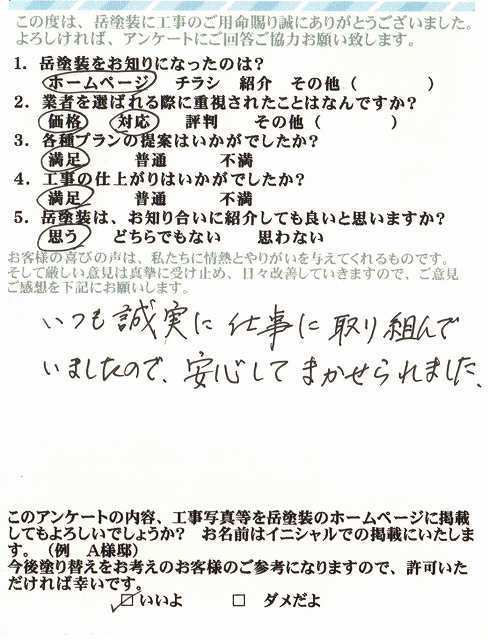 この度は、岳塗装に工事のご用命賜り誠にありがとうございました。
よろしければ、アンケートにご回答ご協力お願い致します。
1．岳塗装をお知りになったのは？
ホームページ　チラシ　紹介　その他（　　　　）
2．業者を選ばれる際に重視されたことはなんですか？
価格　対応　評判　その他（　　　　）
3．各種プランの提案はいかがでしたか？
満足　普通　不満
4．工事の仕上がりはいかがでしたか？
満足　普通　不満
5．岳塗装は、お知り合いに紹介しても良いと思いますか？
思う　どちらでもない　思わない
お客様の喜びの声は、私たちに情熱とやりがいを与えてくれるものです。
そして厳しい意見は真摯に受け止め、日々改善していきますので、ご意見
ご感想を下記にお願いします。
いつも誠実に仕事に取り組んで
いましたので、安心してまかせられました、
このアンケートの内容、工事写真等を岳塗装のホームページに掲載
してもよろしいでしょうか？　お名前はイニシャルでの掲載にいたしま
す。（例　A様邸）
今後塗り替えをお考えのお客様のご参考になりますので、許可いた
だければ幸いです。
☑いいよ　□　ダメだよ